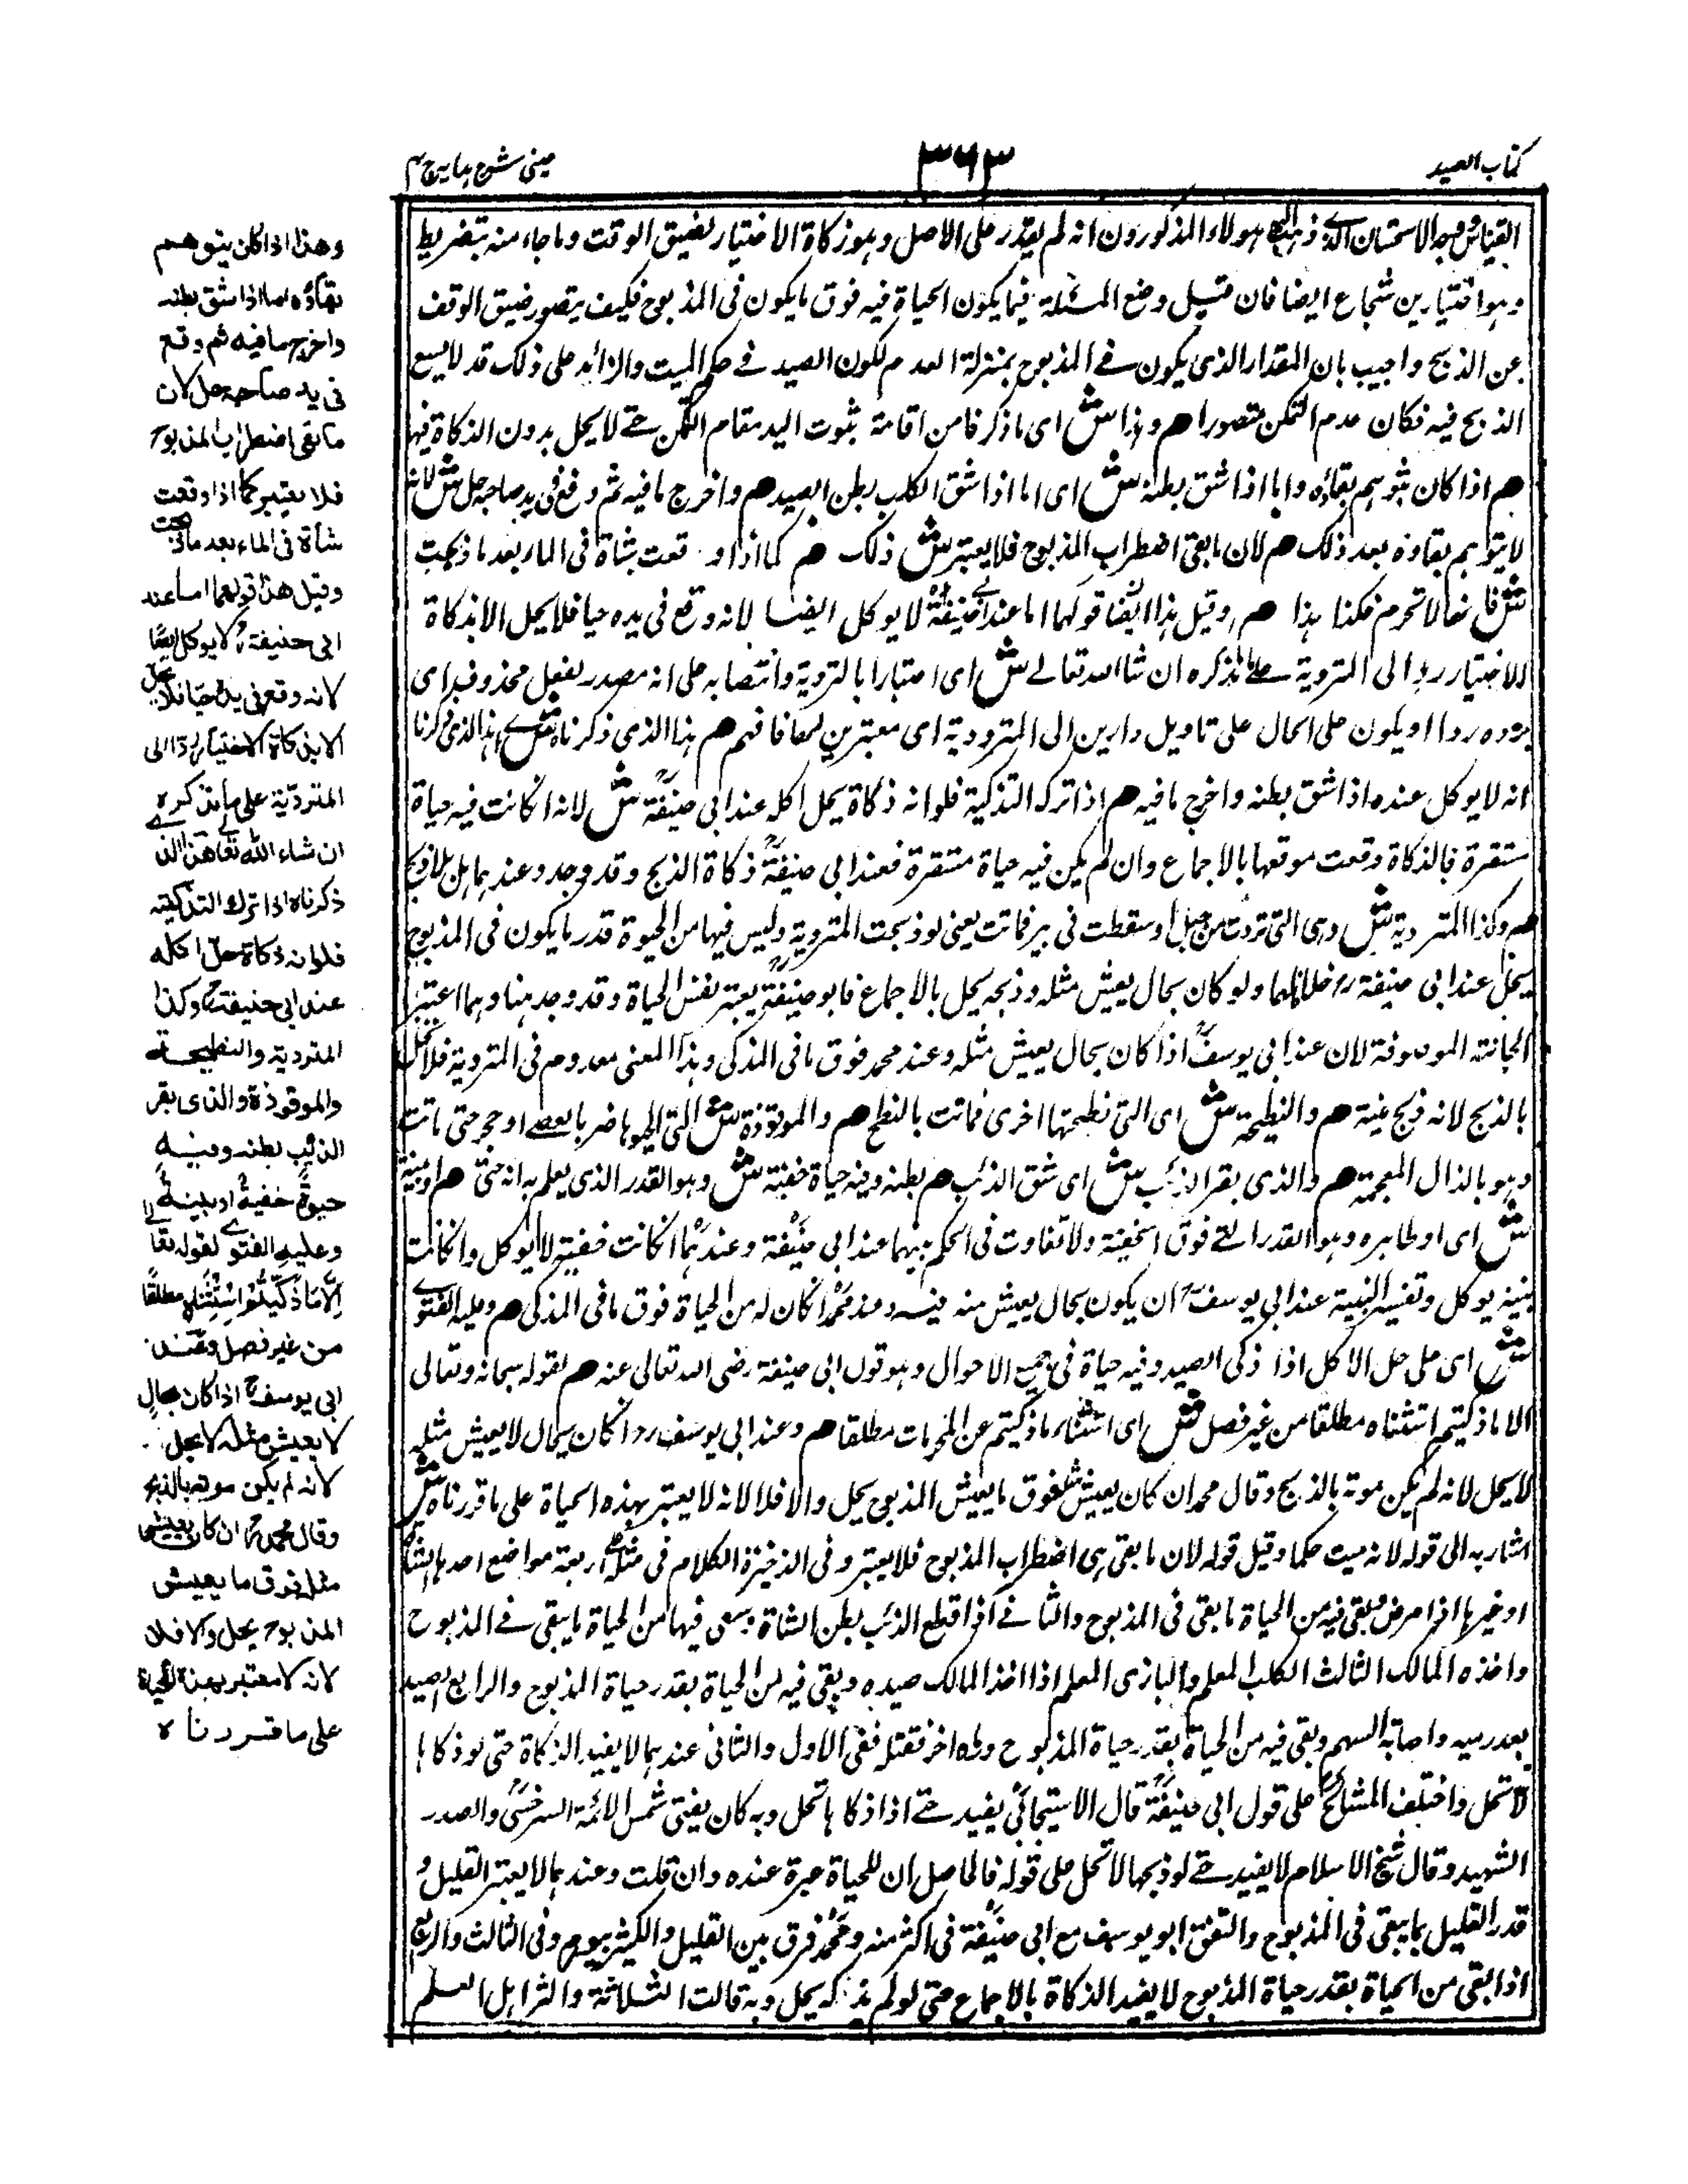 كتاب الصيد
٣٦٣
عينى شرح هدايه ج ٤
القياس وجه الاستحسان الذى ذهب اليه هولاء المذكورون انه لم يقدر على الاصل وهو زكاة الاختيار لضيق الوقت وما جاء منه بتفريط
وهو اختيار بن شجاع ايضا فان قيل وضع المسئلة فيما يكون الحياة فيه فوق ما يكون فى المذبوح فكيف يتصور ضيق الوقف
عن الذبح واجيب بان المقدار الذى يكون فے المذبوح بمنزلة العدم لكون الصيد فے حكم الميت والزائد على ذلك قد لا يسع
الذبح فيه فكان عدم التمكن متصورا هم وهذا ش اى ما ذكرنا من اقامة ثبوت اليد مقام التمكن حتے لا يحل بدون الذكاة فيها
هم اذا كان يتوهم بقاؤه واما اذا شق بطنه ش اى اما اذا شق الكلب بطن الصيد هم واخرج ما فيه ثم وقع فى يد صاحبه حل ش لانه
لا يتوهم بقاؤه بعد ذلك هم لان ما بقى اضطراب المذبوح فلا يعتبر ش ذلك هم كما اذا وقعت شاة فى الماء بعد ما ذبحت
ش فانها لا تحرم فكذا هذا هم وقيل هذا ايضا قولهما اما عند ابى حنيفة لا يوكل ايضا لانه وقع فى يده حيا فلا يحل الا بذكاة
الاختيار ردا الى المتردية على ما نذكره ان شاء الله تعالے ش اى اعتبارا بالتردية وانتصابه على انه مصدر لفعل محذوف اى
يرده ردا او يكون على الحال على تاويل رادين الى المتردية اى معتبرين لها فافهم هم هذا الذى ذكرناه ش اى هذا الذى ذكرنا
انه لا يوكل عنده اذا شق بطنه واخرج ما فيه هم اذا ترك التذكية فلو انه ذكاة يحل اكله عند ابى حنيفة ش لانه ان كانت فيه حياة
مستقرة فالذكاة وقعت موقعها بالاجماع وان لم يكن فيه حياة مستقرة فعند ابى حنيفة ذكاة الذبح وقد وجد وعندهما يحل بلا ذبح
هم وكذا المتردية ش وهى التى تردت من جبل او سقطت فى بير فماتت يعنى لو ذبحت المتردية وليس فيها من الحيوة قدر ما يكون فى المذبوح
يحل عند ابى حنيفة رح خلافا لهما ولو كان بحال يعيش مثله وذبحه يحل بالاجماع فابو حنيفة يعتبر نفس الحياة وقد وجد هنا وهما اعتبرا
الحياة الموصوفة لان عند ابى يوسف اذا كان بحال يعيش مثله وعند محمد فوق ما فى المذكى وهذا المعنى معدوم فى المتردية فلا تحل
بالذبح لانه ذبح ميتة هم والنطيحة ش اى التى نطحتها اخرى فماتت بالنطح هم والموقوذة ش التى ضربا بالعصے او حجر حتى ماتت
وهو بالذال المعجمة هم والذى بقر الذئب ش اى شق الذئب هم بطنه وفيه حياة خفية ش وهو القدر الذى يعلم به انه حى هم او بينة
ش اى او ظاهره وهو القدر التے فوق الخفية ولا تفاوت فى الحكم بينهما عند ابى حنيفة وعندهما ان كانت خفية لا يوكل وان كانت
بينة يوكل وتفسير البينة عند ابى يوسف ان يكون بحال يعيش منه وعند محمد ان كان له من الحياة فوق ما فى المذكى هم وعليه الفتوے
ش اى على حل الاكل اذا ذكى الصيد وفيه حياة فى جميع الاحوال وهو قول ابى حنيفة رضى الله تعالى عنه هم لقوله سبحانه وتعالى
الا ما ذكيتم استثناه مطلقا من غير فصل ش اى استثناء ما ذكيتم عن المحرمات مطلقا هم وعند ابى يوسف رح اذا كان بحال لا يعيش مثله
لا يحل لانه لم يكن موته بالذبح وقال محمد ان كان يعيش مثله فوق ما يعيش المذبوح يحل والا فلا لانه لا يعتبر بهذه الحياة على ما قررناه ش
اشار به الى قوله لانه ميت حكما وقيل قوله لان ما بقى هى اضطراب المذبوح فلا يعتبر وفى الذخيرة الكلام فى مثله اربعة مواضع احدها الشاة
او غيرها اذا مرض وبقى فيه من الحياة ما بقى فى المذبوح والثانے اذا قطع الذئب بطن الشاة وبقى فيها من الحياة ما يبقى فے المذبوح
واخذه المالك الثالث الكلب المعلم والبازى المعلم اذا اخذ المالك صيده وبقى فيه من الحياة بقدر حياة المذبوح والرابع الصيد
بعد رميه واصابة السهم وبقى فيه من الحياة بقدر حياة المذبوح ورماه اخر فقتله ففى الاول والثانى عندهما لا يفيد الذكاة حتى لو ذكاها
لا تحل واختلف المشائخ على قول ابى حنيفة قال الاسبيجابى يفيد حتے اذا ذكاها تحل وبه كان يفتى شمس الائمة السرخسى والصدر
الشهيد وقال شيخ الاسلام لا يفيد حتے لو ذبحها لا تحل على قوله فالحاصل ان للحياة عبرة عنده وان قلت وعندهما لا يعتبر القليل و
قدر القليل بما يبقى فى المذبوح واتفق ابو يوسف مع ابى حنيفة فى اكثر منه ومحمد فرق بين القليل والكثير بيوم وفى الثالث والرابع
اذا بقى من الحياة بقدر حياة المذبوح لا يفيد الذكاة بالاجماع حتى لو لم يذكه يحل وبه قالت الثلاثة واكثر اهل العلم
وهذا اذا كان يتوهم
بقاؤه اما اذا شق بطنه
واخرج ما فيه ثم وقع
فى يد صاحبه حل لان
ما بقى اضطراب المذبوح
فلا يعتبر كما اذا وقعت
شاة فى الماء بعد ما ذبحت
وقيل هذا قولهما اما عند
ابى حنيفة رح لا يوكل ايضا
لانه وقع فى يده حيا فلا يحل
الا بذكاة الاختيار ردا الى
المتردية على ما نذكره
ان شاء الله تعالى هذا الذى
ذكرناه اذا ترك التذكية
فلو انه ذكاة حل اكله
عند ابى حنيفة رح وكذا
المتردية والنطيحة
والموقوذة والذى بقر
الذئب بطنه وفيه
حيوة خفية او بينة
وعليه الفتوے لقوله تعالى
الا ما ذكيتم استثناه مطلقا
من غير فصل وعند
ابى يوسف رح اذا كان بحال
لا يعيش مثله لا يحل
لانه لم يكن موته بالذبح
وقال محمد رح ان كان يعيش
مثله فوق ما يعيش
المذبوح يحل والا فلا
لانه لا معتبر بهذه الحياة
على ما قررناه